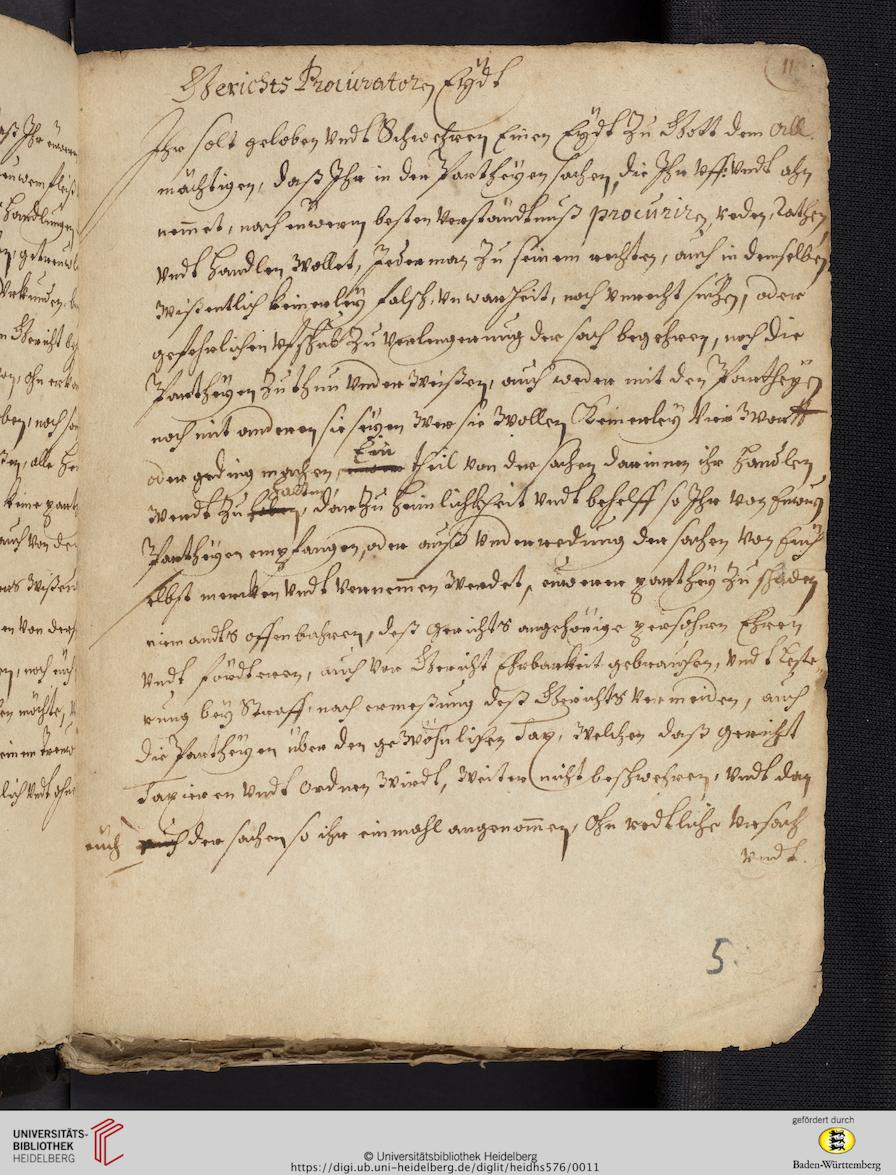 11
Gerichts Procuratorn Eÿdt
Ihr solt geloben vndt Schwehren Einen Eÿdt Zu Gott dem All-
mächtigen, daß Ihr in den Partheÿen sachen, die Ihr vff: vndt ahn
nemmet, nach euwerm besten verständtnuß procurirn, reden, Rathen
vndt handlen wollet, Jederman Zu seinem rechten, auch in demselben
wißentlich keinerleÿ falsch, vnwarheit, noch vnrecht suchen, oder
gefehrlichen vffschub Zu verlengerung der sach begehren, noch die
Partheÿen Zuthun vnderweißen, auch weder mit den Partheÿen
noch mit anderen sie seÿen wer sie wollen Keinerleÿ Vorwortt
oder geding machen, Ein theil von der sachen darinnen ihr handlen
werdt Zu halten, darZu heimlichkheit vndt behelff so Ihr von Euwern
Partheÿen empfangen, oder auß vnderredung der sachen von Euch
selbst mercken vndt vernemmen werdet, euwerer partheÿ Zu schaden
niemandts offenbahren, deß gerichts angehörige persohnen Ehren
vndt fördteren, auch vor Gericht Ehrbarkeit gebrauchen, vndt Leste-
rung beÿ Straff, nach ermeßung deß Gerichts vermeiden, auch
die Partheÿen über den gewöhnlichen Tax, welchen daß gericht
Taxieren vndt ordnen wirdt, weiter nicht beschwehren, vndt dan
euch der sachen so ihr einmahl angenommen, ohn redtliche vrsach
vndt.
5.
UNIVERSITÄTS-
BIBLIOTHEK
HEIDELBERG
© Universitätsbibliothek Heidelberg
https://digi.ub.uni-heidelberg.de/diglit/heidhs576/0011
gefördert durch
Baden-Württemberg